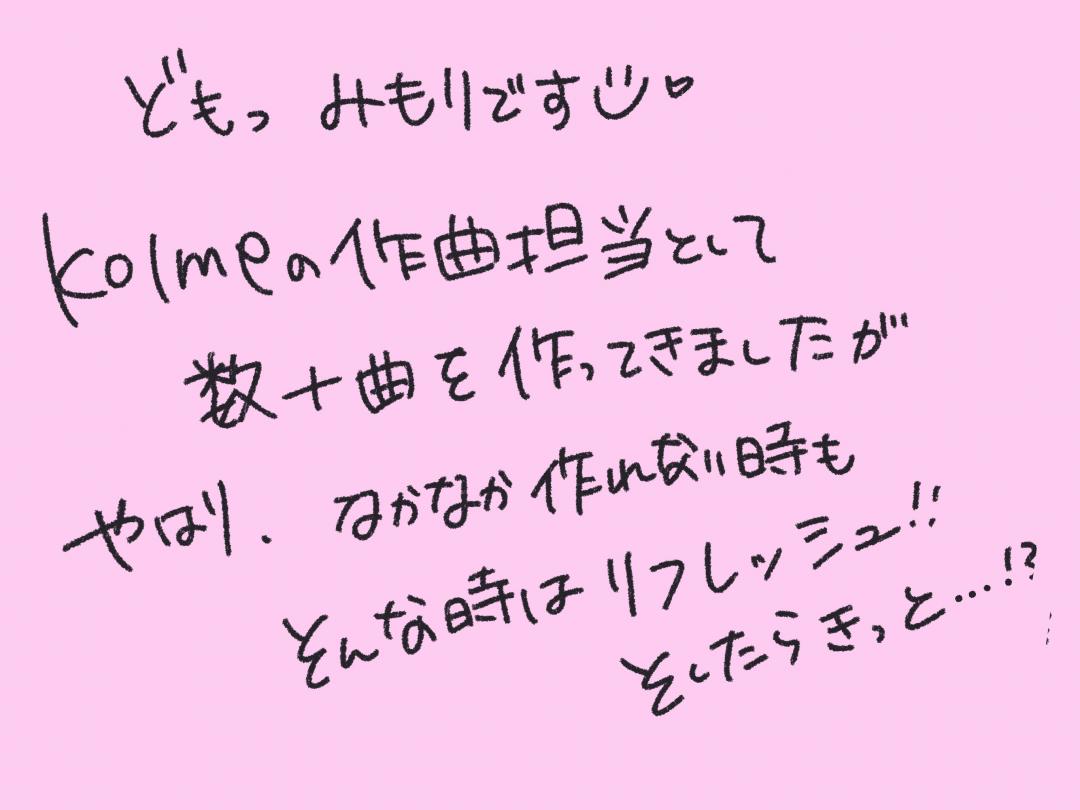 どもっ みもりです ♡
kolmeの作曲担当として
数十曲を作ってきましたが
やはり、なかなか作れない時も
そんな時はリフレッシュ!!
そしたらきっと…!?